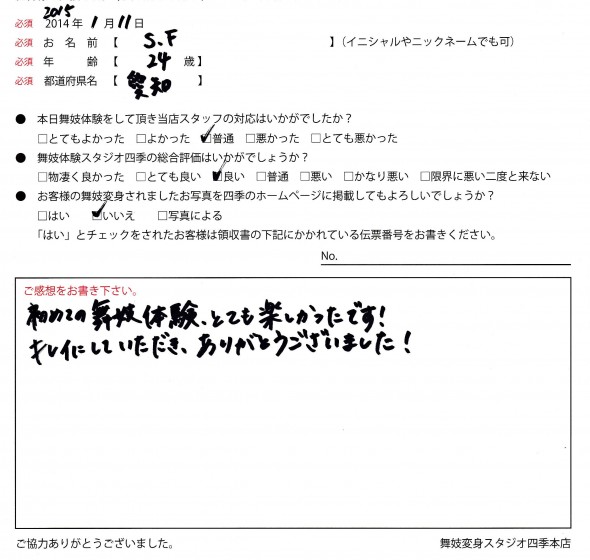 2015
必須 2014年 1月11日
必須 お名前【 S.F 】(イニシャルやニックネームでも可)
必須 年齢【 24 歳】
必須 都道府県名【 愛知 】
● 本日舞妓体験をして頂き当店スタッフの対応はいかがでしたか?
□とてもよかった □よかった ☑普通 □悪かった □とても悪かった
● 舞妓体験スタジオ四季の総合評価はいかがでしょうか?
□物凄く良かった □とても良い ☑良い □普通 □悪い □かなり悪い □限界に悪い二度と来ない
● お客様の舞妓変身されましたお写真を四季のホームページに掲載してもよろしいでしょうか?
□はい ☑いいえ □写真による
「はい」とチェックをされたお客様は領収書の下記にかかれている伝票番号をお書きください。
No.
ご感想をお書き下さい。
初めての舞妓体験、とても楽しかったです!
キレイにしていただき、ありがとうございました!
ご協力ありがとうございました。 舞妓変身スタジオ四季本店